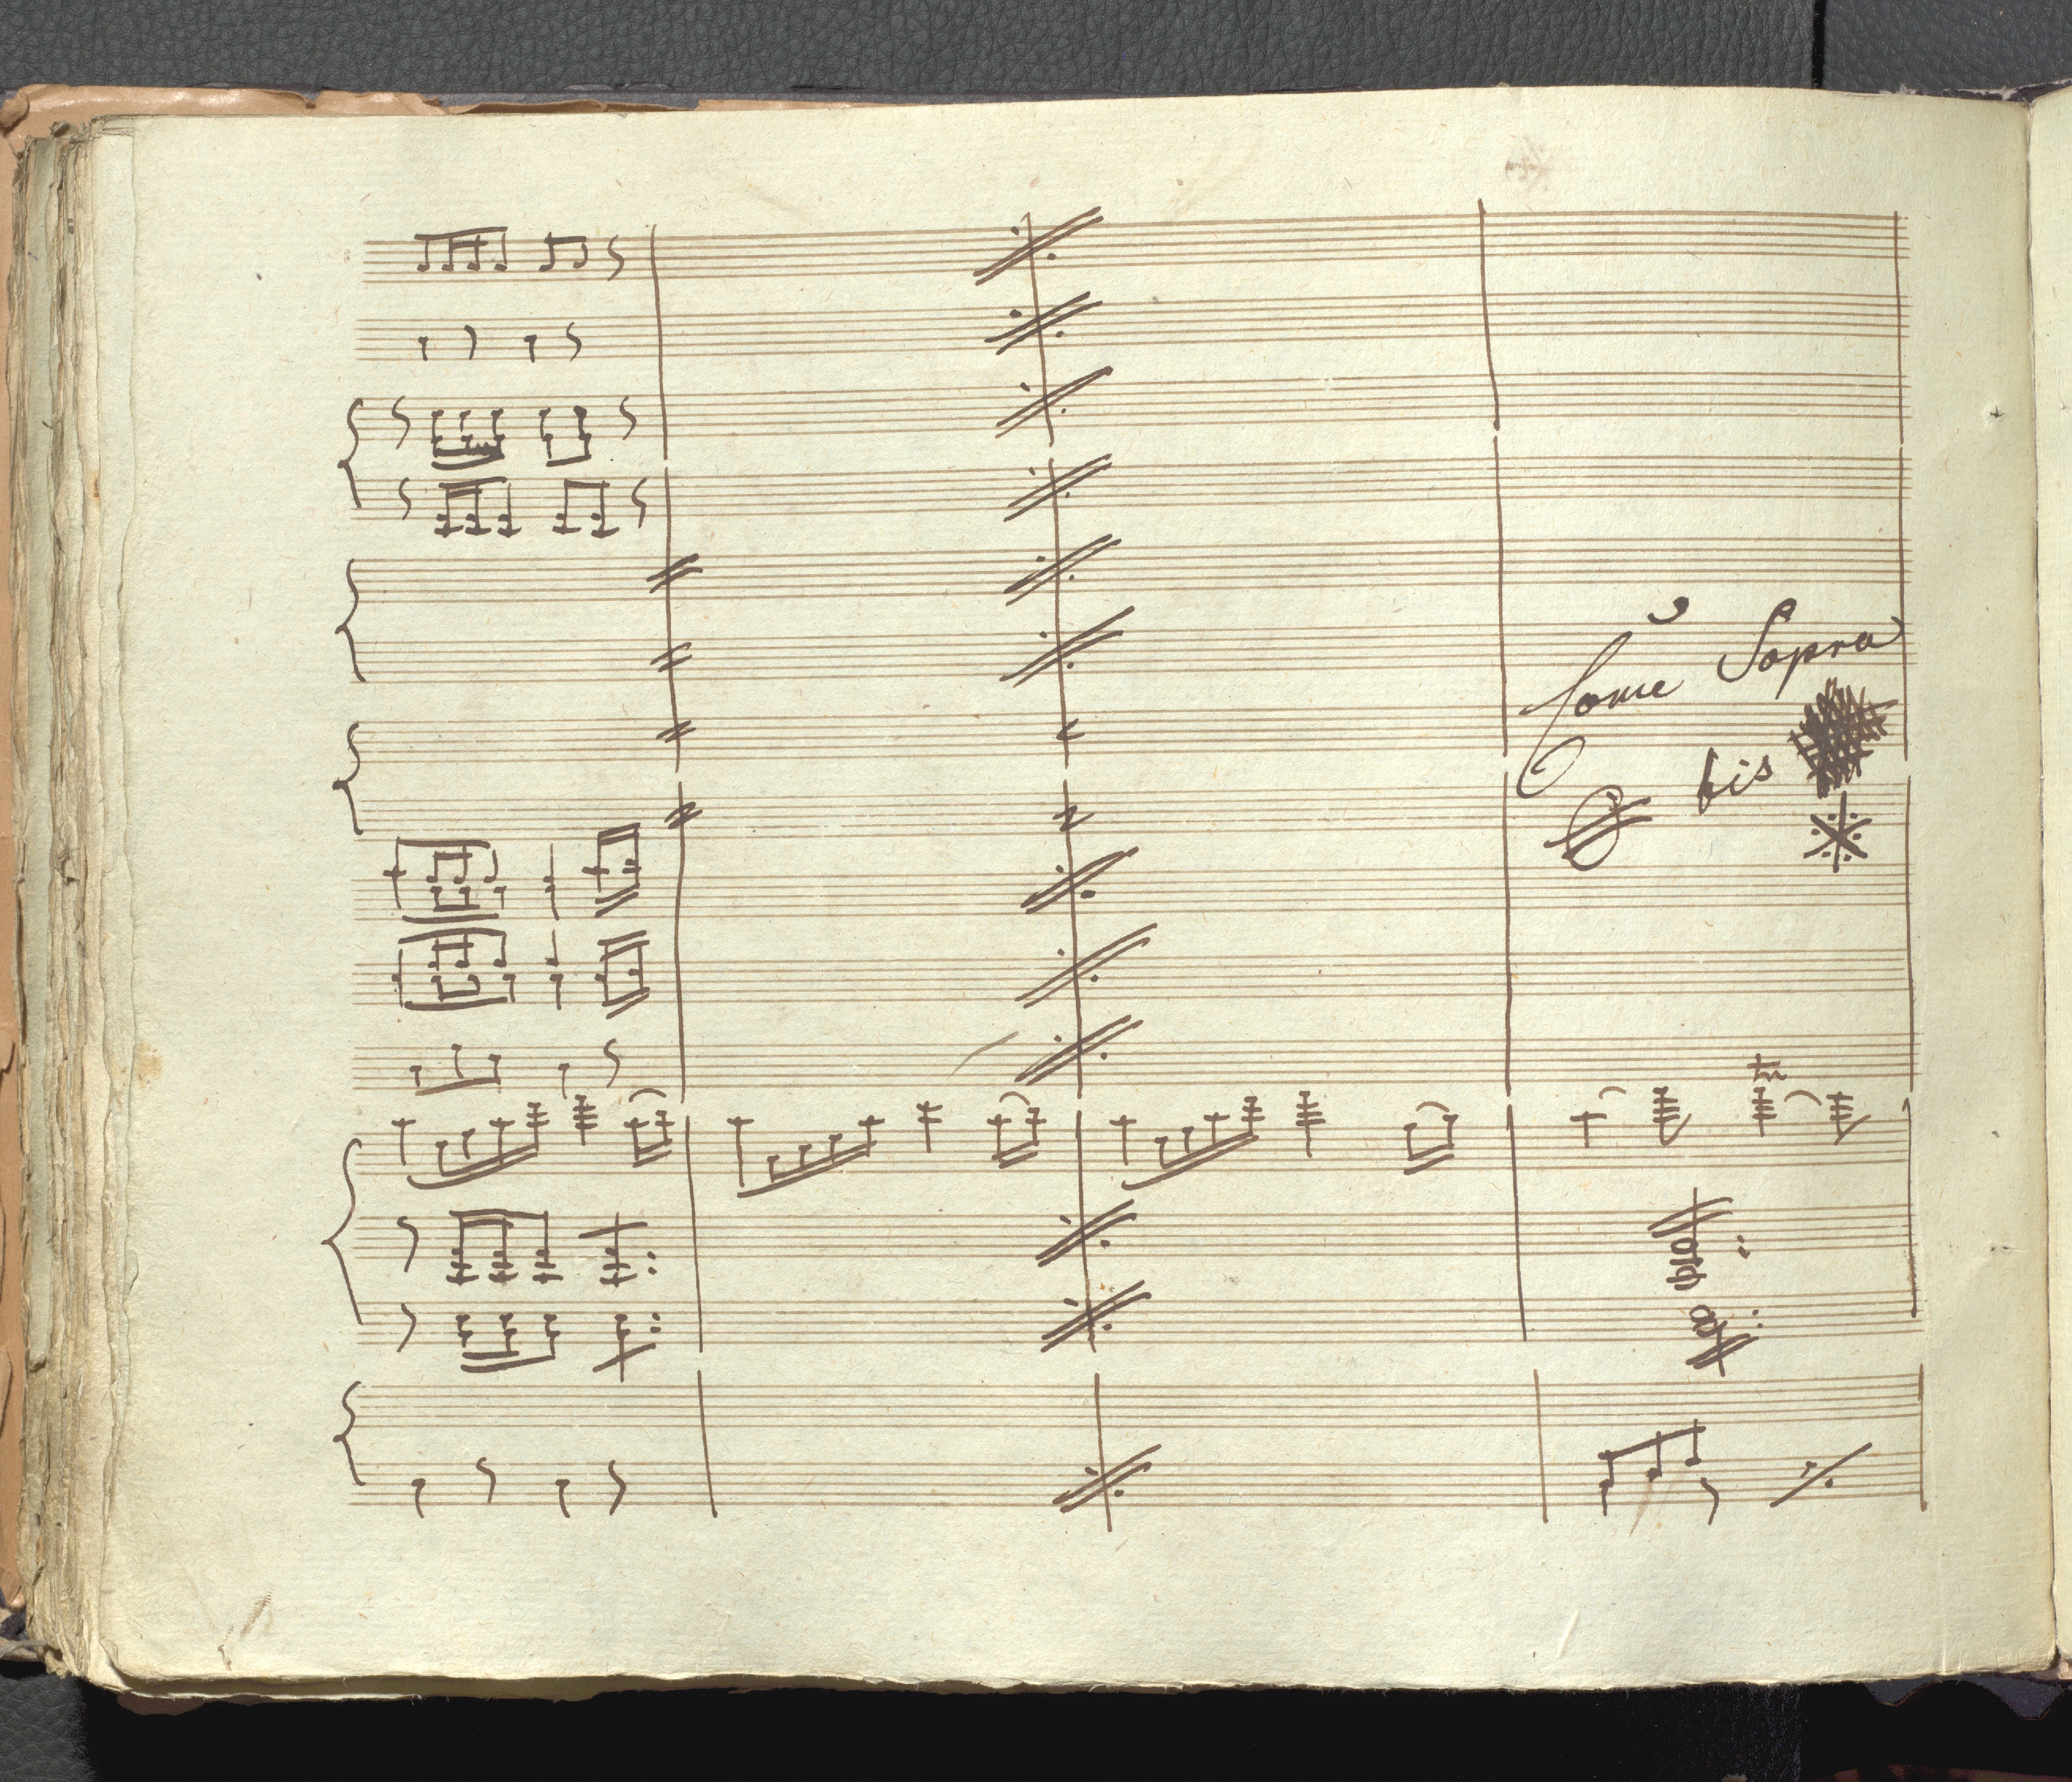 Come Sopra
bis
tr